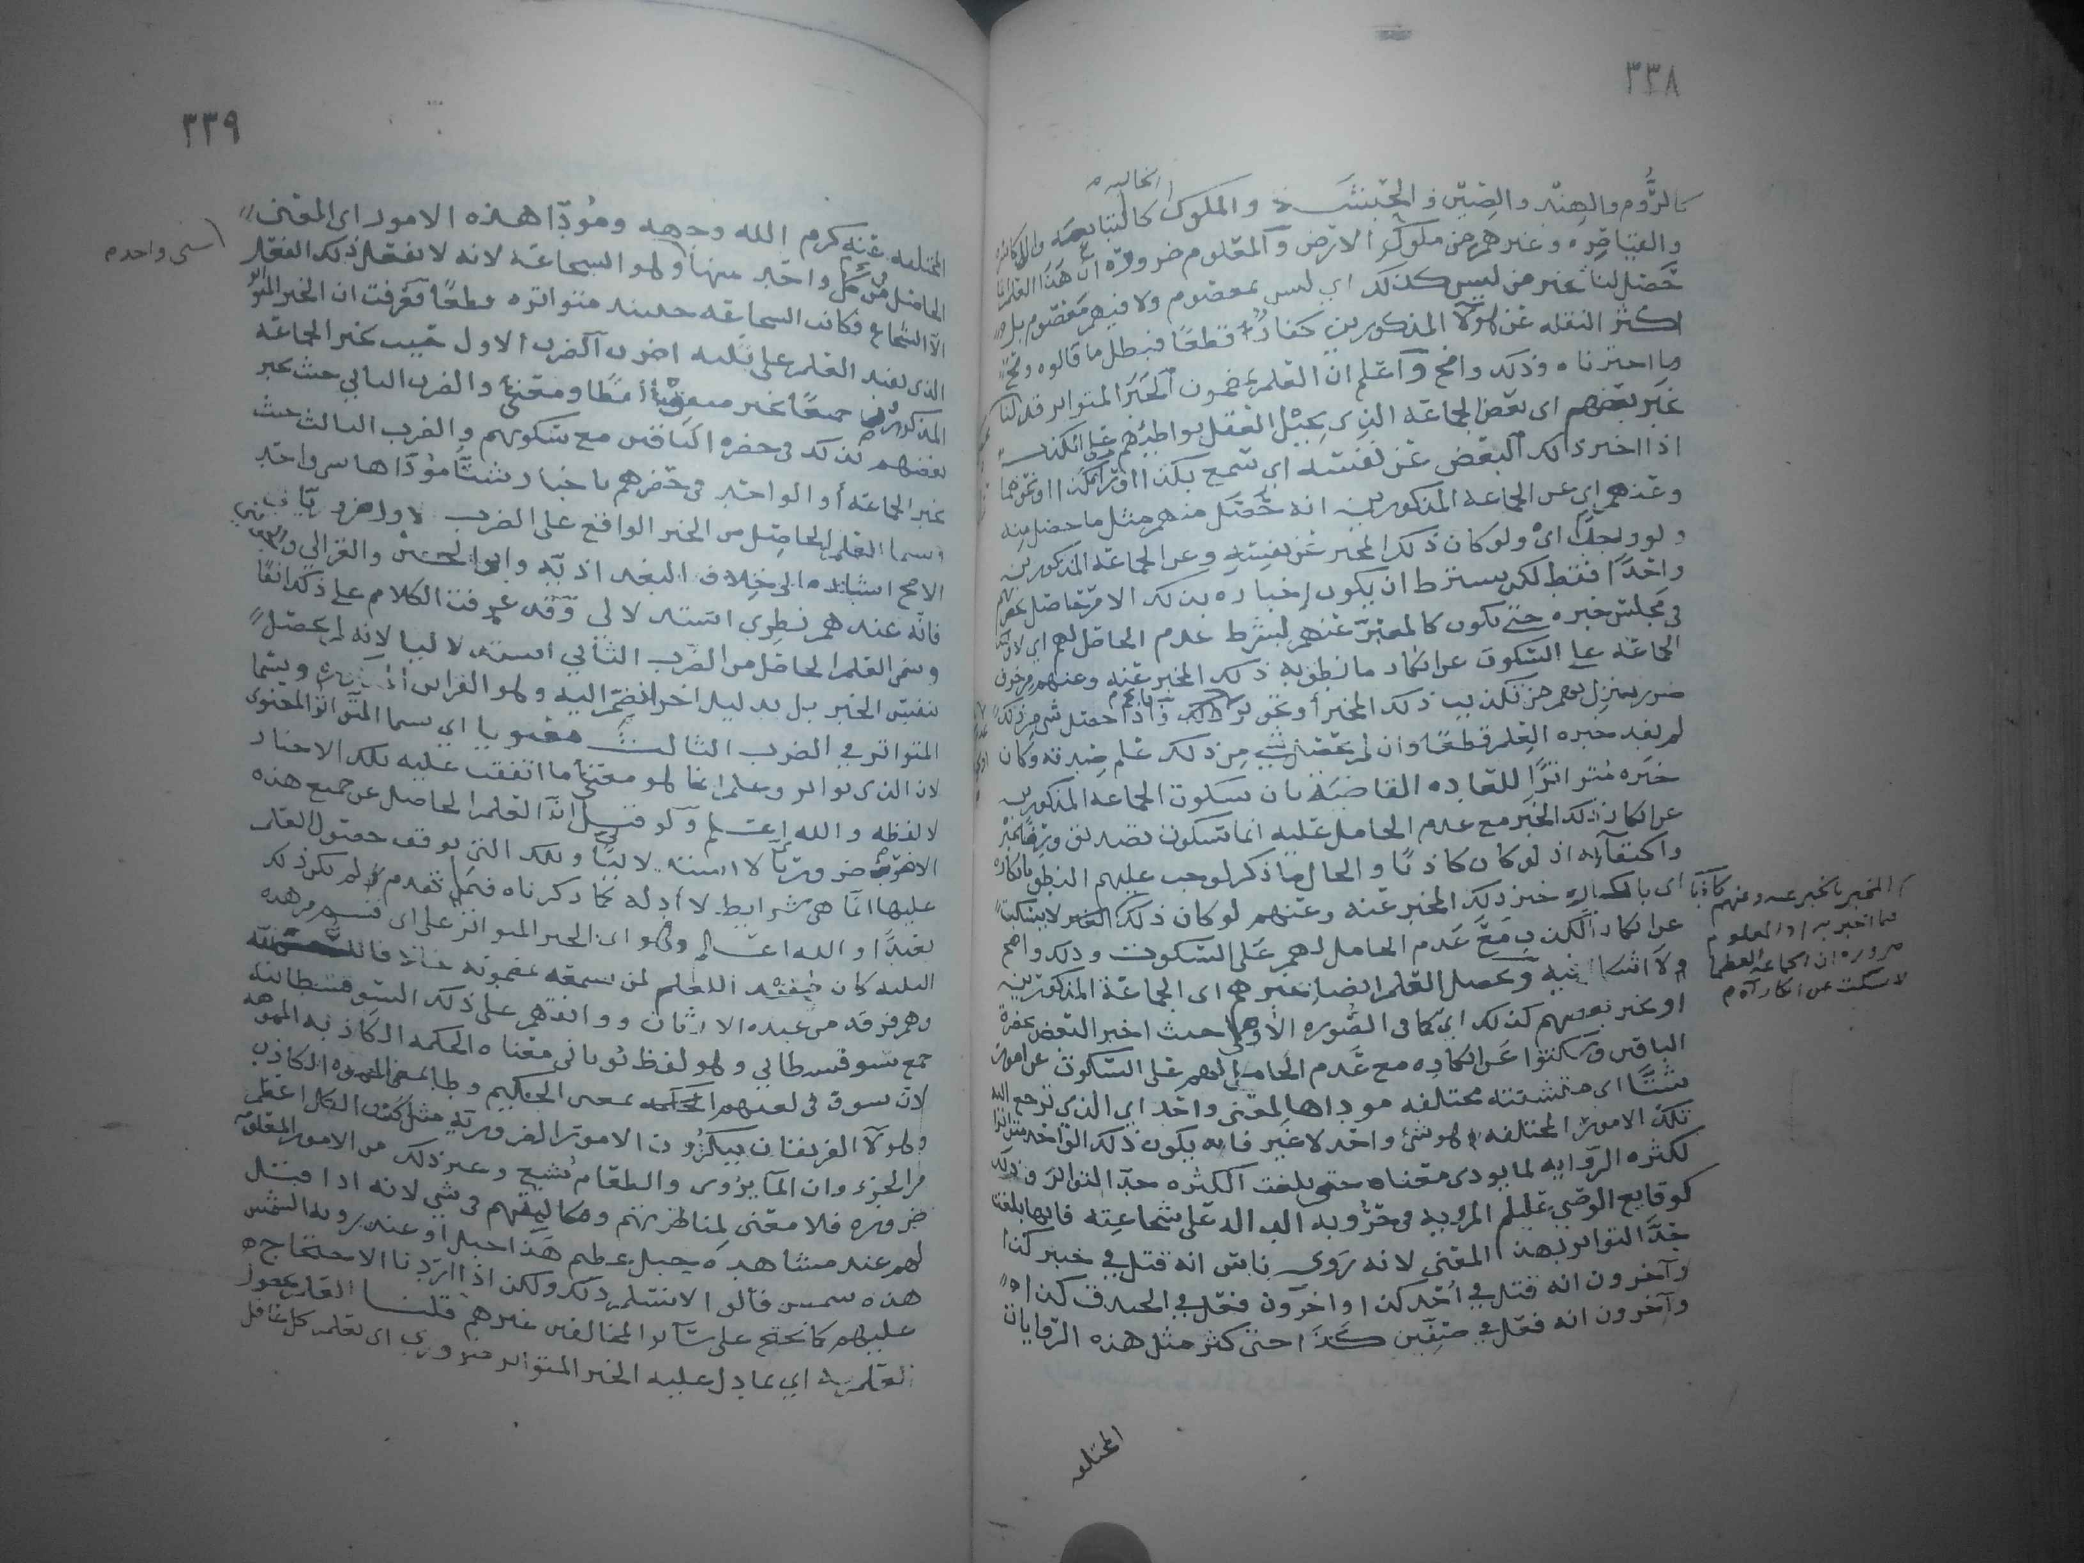 ٣٣٨
كالرُّوم والهند والصين والحبشة والملوك الخاليه كالتبابعه والاكاسره
والقياصِرِه وغيرهم من ملوك الارض والمعلوم ضروره ان هذا العلم انما
حَصَل لنا بخبر من ليس كذلك اي ليس بمعصوم ولا فيهم معصوم بل
اكثر النقله عن هولآ المذكورين كفارٌ قطعًا فبطل ما قالوه وصح
ما اخترناه وذلك واضح وآعلم ان العلم بمضمون الخبر المتواتر قد
بخبر بعضهم اى بعض الجماعه الذي يحيل العقل تواطيهم على الكذب
اذا اخبر ذلك البعض عن نفسه اي سمع بكذا او ترك كذا او نحوهما
وعنهم اي عن الجماعه المذكورين انه حَصَل منهم مثل ما حصل منه
ولو واحدًا اىْ ولو كان ذلك المخبر عن نفسِهِ وعن الجماعه المذكورين
واحدًا فقط لكن يسترط ان يكون إخباره بذلك الامر حاصل
في مجلس خبره حتى تكون كالمعبّر عنهم بشرط عدم الحامل لهم اي
الجماعَه على السكوت عن انكار ما نطق به ذلك المخبر عنه وعنهم من خوف
ضرر ينزل بهم من تكذيب ذلك المخبر أو نحو ذلك واذا حصل شى من ذلك
لم يفد خبره العِلم قطعًا وان لم يحصل شي مِن ذلك علم صدقه وكان
خبَره مُتواترًا للعاده القاضيَه بان سكوت الجماعه المذكورين
عن انكار ذلك الخبر مع عدم الحامل عليه انما تكون تصديق
واكتفآءً به اذ لو كان كاذبًا والحال ما ذكر لوجب عليهم النطق بانكاره
اى بانكار خبر ذلك المخبر عنه وعنهم لو كان ذلك الخبر
عن انكار الكذب مَعَ عَدم الحامل لهم عَلى السكوت وذلك واضح
ولا اشكال فيه وتحصل العلم ايضا بخبرهم اى الجماعَة المذكورين
او بخبر بعضهم كذلك اي كما فى الصُّوره الأولى حيث اخبر البعض بحضرة
الباقين وسكتوا عَن انكاره مع عَدم الحامل لهم على السكوت عن امور
شتَّا اى متشتته مختلفه موداها لمعنى واحد اي الذي ترجع اليه
تلك الامور المختلفه هو شئ واحد لا غير فانه يكون ذلك الواحد متواترا
لكثره الرّوايه لما يودى معناه حتى بلغت الكثره حدّ التواتر وذلك
كوقايع الوصي عليلم المرويه فى حرُوبه الداله على شجاعتِه فانها بلغت
حدَّ التواتر بهذا المعنى لانه رَوى ناسٌ انه قتل في خيبر كذا
وآخرون انه قتل في اُحُد كذا وآخرون فعَل في الخندق كذا
وآخرون انه فعل في صِفّين كذا حتى كثر مثل هذه الرّوايات
المختلفه
المخبر بالخبر عنه وعنهم كاذبًا
فيما اخبر به اذ المعلوم
ضروره ان الجماعه العظما
لا تسكت عن انكاره
٣٣٩
المختلفه عَنه كرم الله وجهه ومُودّا هذه الامور اى المعنى
الحاصل من كل واحد منها شى واحد وهو الشجاعَه لانه لا يفعل ذلك الفعل
الآ الشجاع فكانت الشجاعَه حينيذ متواتره قطعًا فعَرفت ان الخبر المتواتر
الذى يفيد العلم على ثلثه اضرب الضرب الاول حيث يخبر الجماعَه
المذكورون جميعًا بخبر متفِق لفظًا ومعنىً والضرب الثاني حيث يخبر
بعضهم كذلك فى حضره الباقين مع سكوتهم والضرب الثالث حيث
يخبر الجماعَه أو الواحد فى حضرهم باخبارٍ شتَّا مؤدّاها شى واحد
ويسما العلم الحاصِل من الخبر الواقع على الضرب الاول ضروريًّا فى
الاصح اشاره الى خلاف البغداديّه وابو الحسين والغزالي والجويني
فانه عندهم نظرى استدلالى وقد عرفت الكلام على ذلك انفًا
وسمى العلم الحاصل من الضرب الثاني استدلاليا لانه لم يحصل
بنفس الخبر بل بدليل اخر انضمّ اليه وهو القراين ويسما
المتواتر في الضرب الثالث معنويا اي يسما المتواتر المعنوى
لان الذى تواتر وعلم انما هو معنى ما اتفقت عليه تلك الاخبار
لا لفظه والله اعلم ولو قيل انّ العلم الحاصل عن جميع هذه
الاضرب ضروريّا لا استدلاليًّا وتلك التى توقف حصول العلم
عليها انّما هى شرايط لا أدله كما ذكرناه فيما تقدم لم يكن ذلك
بعيدًا والله اعلم وهو اى الخبر المتواتر على اى قسم من هذه
الثلثه كان مفيد للعلم لمن سمعه بمضمونه خلافا للسمنيه
وهم فرقه من عبدة الاوثان ووافقهم على ذلك السوفسطائيه
جمع سوفسطائي وهو لفظ يُونانى معناه الحكمه الكاذبه المموهه
لان سوف فى لغتهم الحكمه بمعنى الحكيم وطا بمعنى المموه الكاذب
وهولآ الفريقان ينكرُون الامور الضروريه مثل كون الكل اعظم
من الجزء وان المآ يروى والطعام يُشبع وغير ذلك من الامور المعلومه
ضروره فلا معنى لمناظرتهم ومكالمتهم فى شي لانه اذا قيل
لهم عند مشاهده جبل عظيم هَذا جبل أو عند رويه الشمس
هذه شمس قالوا لا نسلم ذلك ولكن اذا اردنا الاحتجاج
عليهم كما نحتج على سآئر المخالفين غيرهم قلنا العلم بحصول
العلم به اي بما دل عليه الخبر المتواتر ضروري اى يعلمه كل عاقل